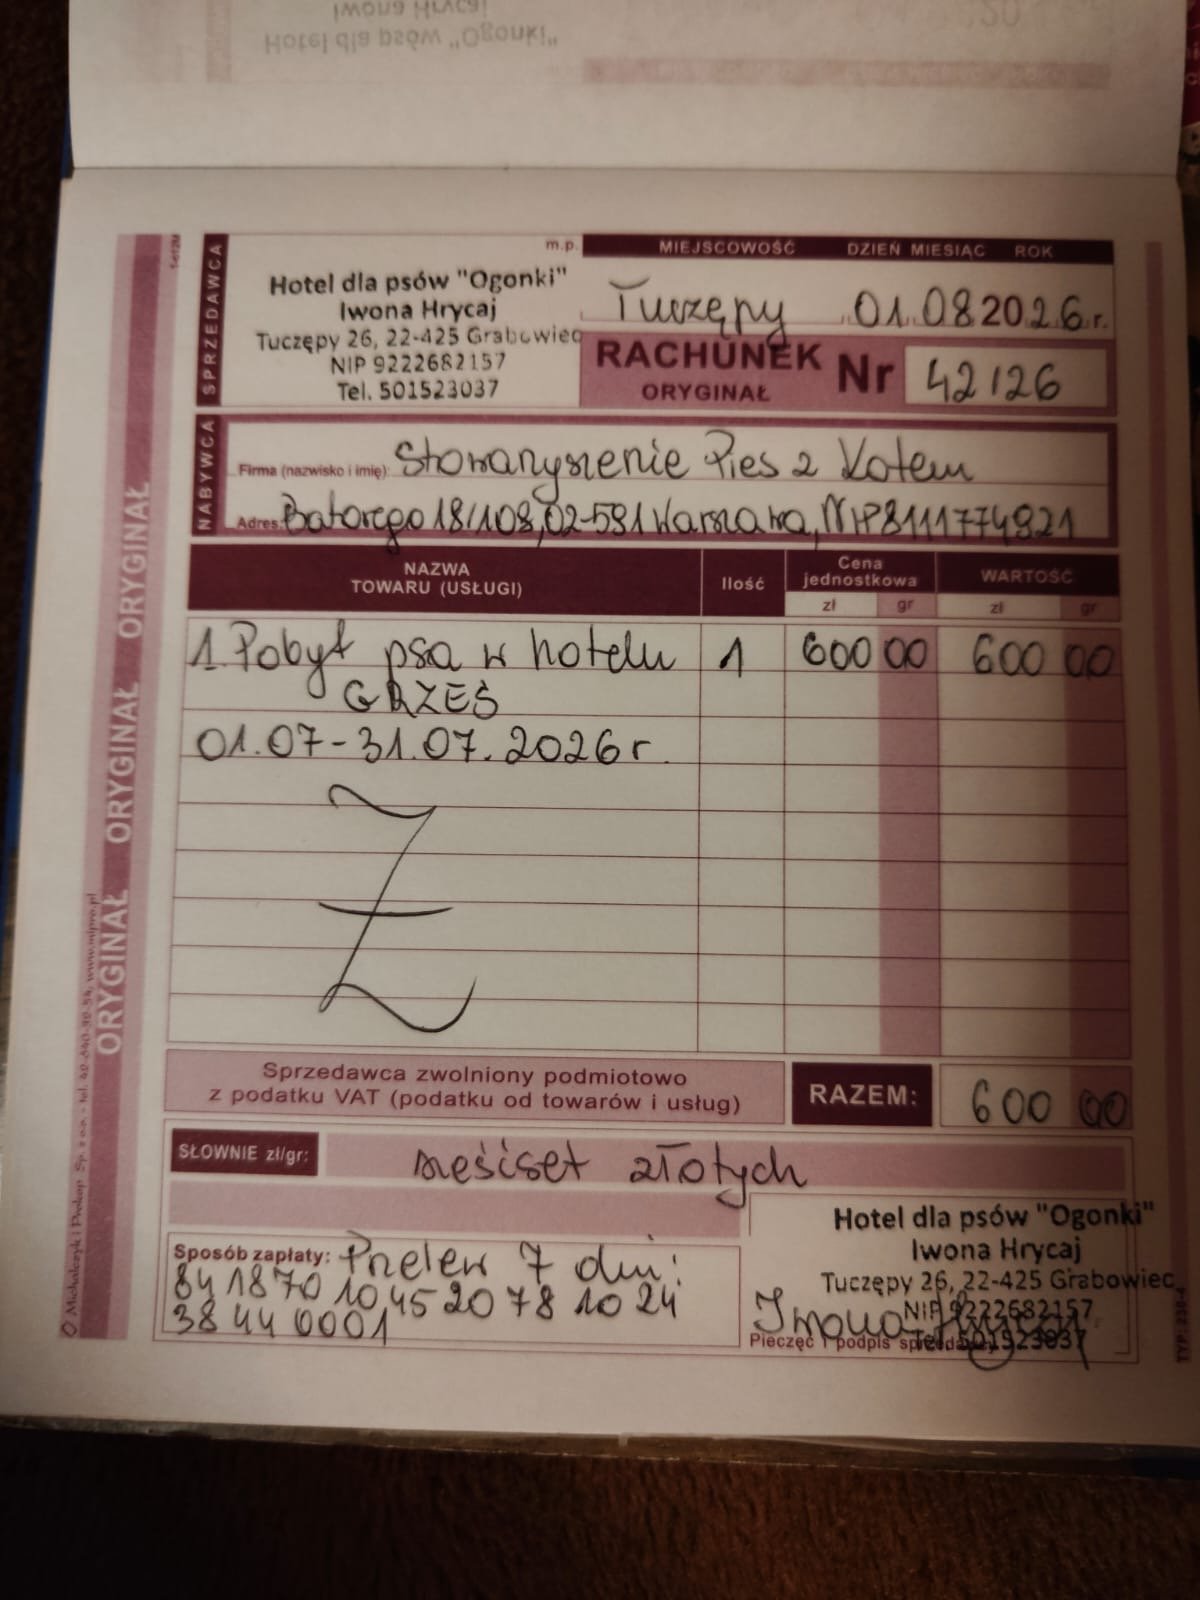 Iwona Hrycaj
Hotel dla psów "Ogonki"
SPRZEDAWCA
m.p.
Hotel dla psów "Ogonki"
Iwona Hrycaj
Tuczępy 26, 22-425 Grabowiec
NIP 9222682157
Tel. 501523037
MIEJSCOWOŚĆ DZIEŃ MIESIĄC ROK
Tuczępy 01.08 2026 r.
RACHUNEK Nr 42/26
ORYGINAŁ
NABYWCA
Firma (nazwisko i imię): Stowarzyszenie Pies z Kotem
Adres: Batorego 18/108, 02-591 Warszawa, NIP 8111774921
NAZWA TOWARU (USŁUGI) Ilość Cena jednostkowa WARTOŚĆ
zł gr zł gr
1. Pobyt psa w hotelu 1 600 00 600 00
GRZEŚ
01.07-31.07.2026 r.
Sprzedawca zwolniony podmiotowo
z podatku VAT (podatku od towarów i usług)
RAZEM: 600 00
SŁOWNIE zł/gr: sześćset złotych
Sposób zapłaty: Przelew 7 dni:
84 1870 1045 2078 1024
3844 0001
Hotel dla psów "Ogonki"
Iwona Hrycaj
Tuczępy 26, 22-425 Grabowiec
NIP 9222682157
Tel. 501523037
Iwona Hrycaj
Pieczęć i podpis sprzedawcy
ORYGINAŁ ORYGINAŁ ORYGINAŁ ORYGINAŁ
© Michalczyk i Prokop Sp. z o.o. - tel. 42-640-92-54, www.mipro.pl